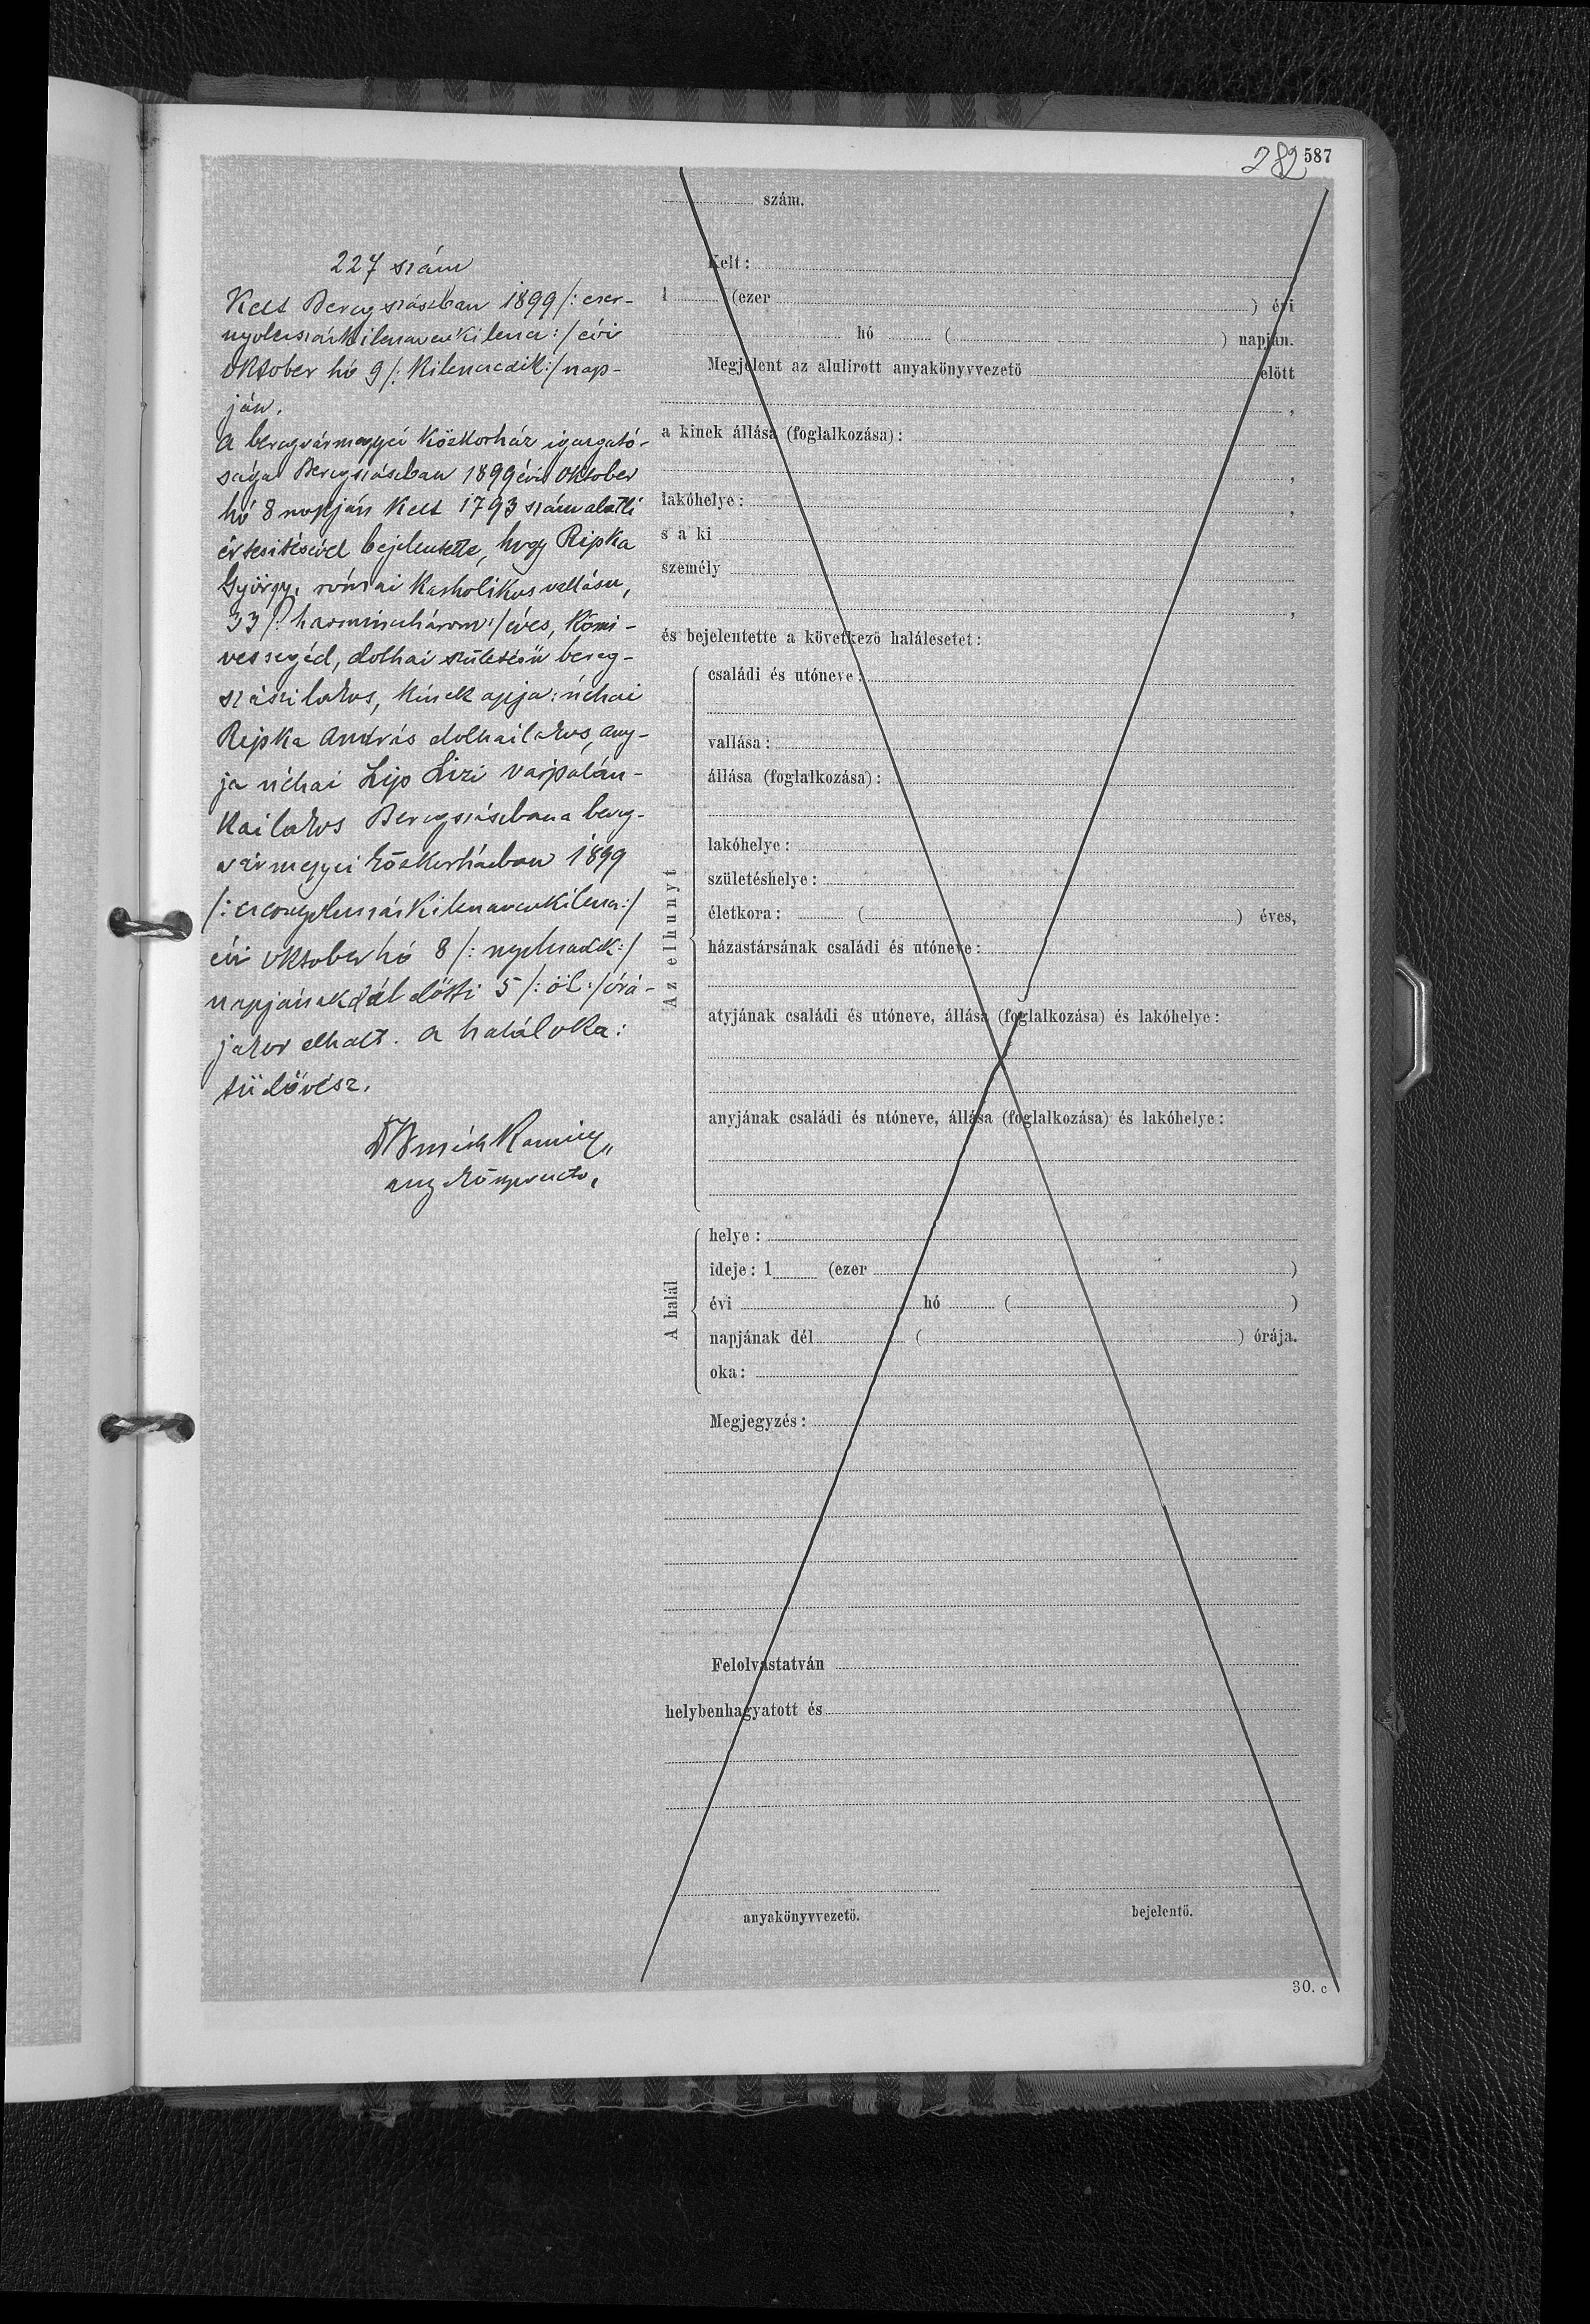 282 587
szám.
227 szám
Kelt Beregszászban 1899 /: ezer-
nyolcszázkilencvenkilenc :/ évi
október hó 9 /: kilencedik :/ nap-
ján.
A beregvármegyei közkórház igazgató-
sága Beregszászban 1899 évi október
hó 8 napján kelt 1793 szám alatti
értesítésével bejelentette, hogy Ripka
György, római katholikus vallásu,
33 /: harminchárom :/ éves, kőmi-
vessegéd, dolhai születésü bereg-
szászi lakos, kinek apja: néhai
Ripka András dolhai lakos, any-
ja néhai Lipo Lizi várpalán-
kai lakos Beregszászban a bereg-
vármegyei közkórházban 1899
/: ezernyolcszázkilencvenkilenc :/
évi október hó 8 /: nyolcadik :/
napjának dél előtti 5 /: öt :/ órá-
jakor elhalt. A halál oka:
tüdővész.
anyakönyvvezető.
Kelt:
1 (ezer ) évi
hó ( ) napján.
Megjelent az alulirott anyakönyvvezetö előtt
,
a kinek állása (foglalkozása):
,
lakóhelye: ,
s a ki
személy
,
és bejelentette a következö halálesetet:
Az elhunyt
családi és utóneve:
vallása:
állása (foglalkozása):
lakóhelye:
születéshelye:
életkora: ( ) éves,
házastársának családi és utóneve:
atyjának családi és utóneve, állása (foglalkozása) és lakóhelye:
anyjának családi és utóneve, állása (foglalkozása) és lakóhelye:
A halál
helye:
ideje: 1 (ezer )
évi hó ( )
napjának dél ( ) órája.
oka:
Megjegyzés:
Felolvastatván
helybenhagyatott és
anyakönyvvezetö. bejelentö.
30. c